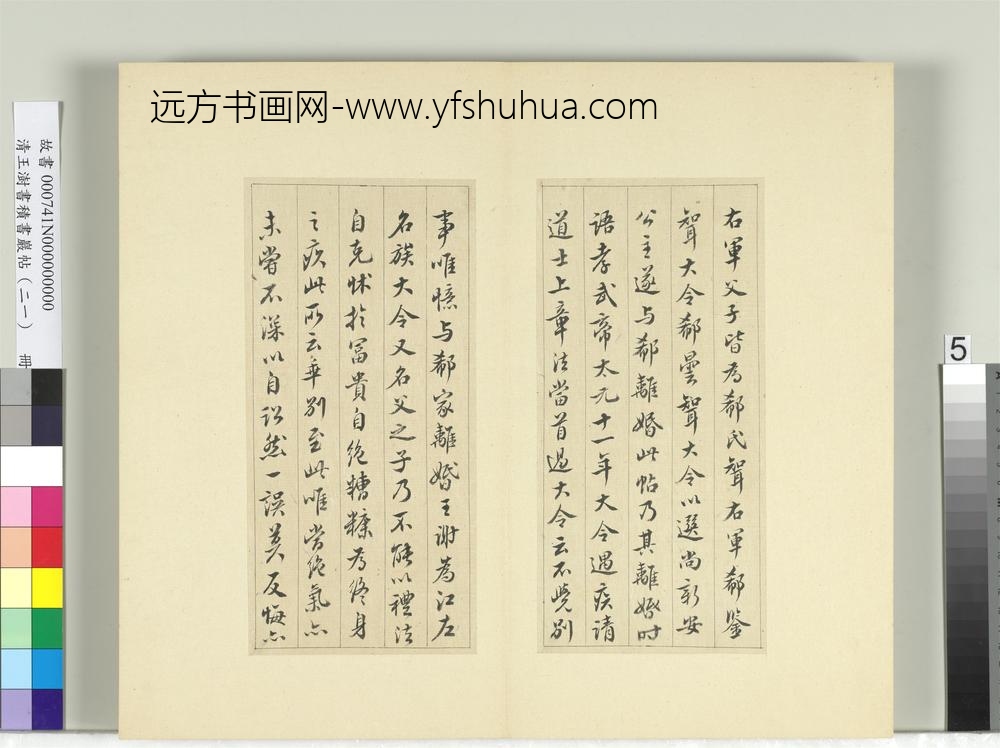 远方书画网-www.yfshuhua.com
右軍父子皆為郗氏聟右軍郗鑒
聟大令郗曇聟大令以選尚新安
公主遂与郗離婚此帖乃其離婚时
語孝武帝太元十一年大令遇疾请
道士上章法當首過大令云不覺别
事唯憶与郗家離婚王谢為江左
名族大令又名父之子乃不能以禮法
自克怵於富貴自絶糟糠為终身
之疚此所云乖别至此唯當绝氣亦
未嘗不深以自訟然一誤莫反悔亦
故書 000741N000000000
清王澍書積書巖帖（二一） 冊
5